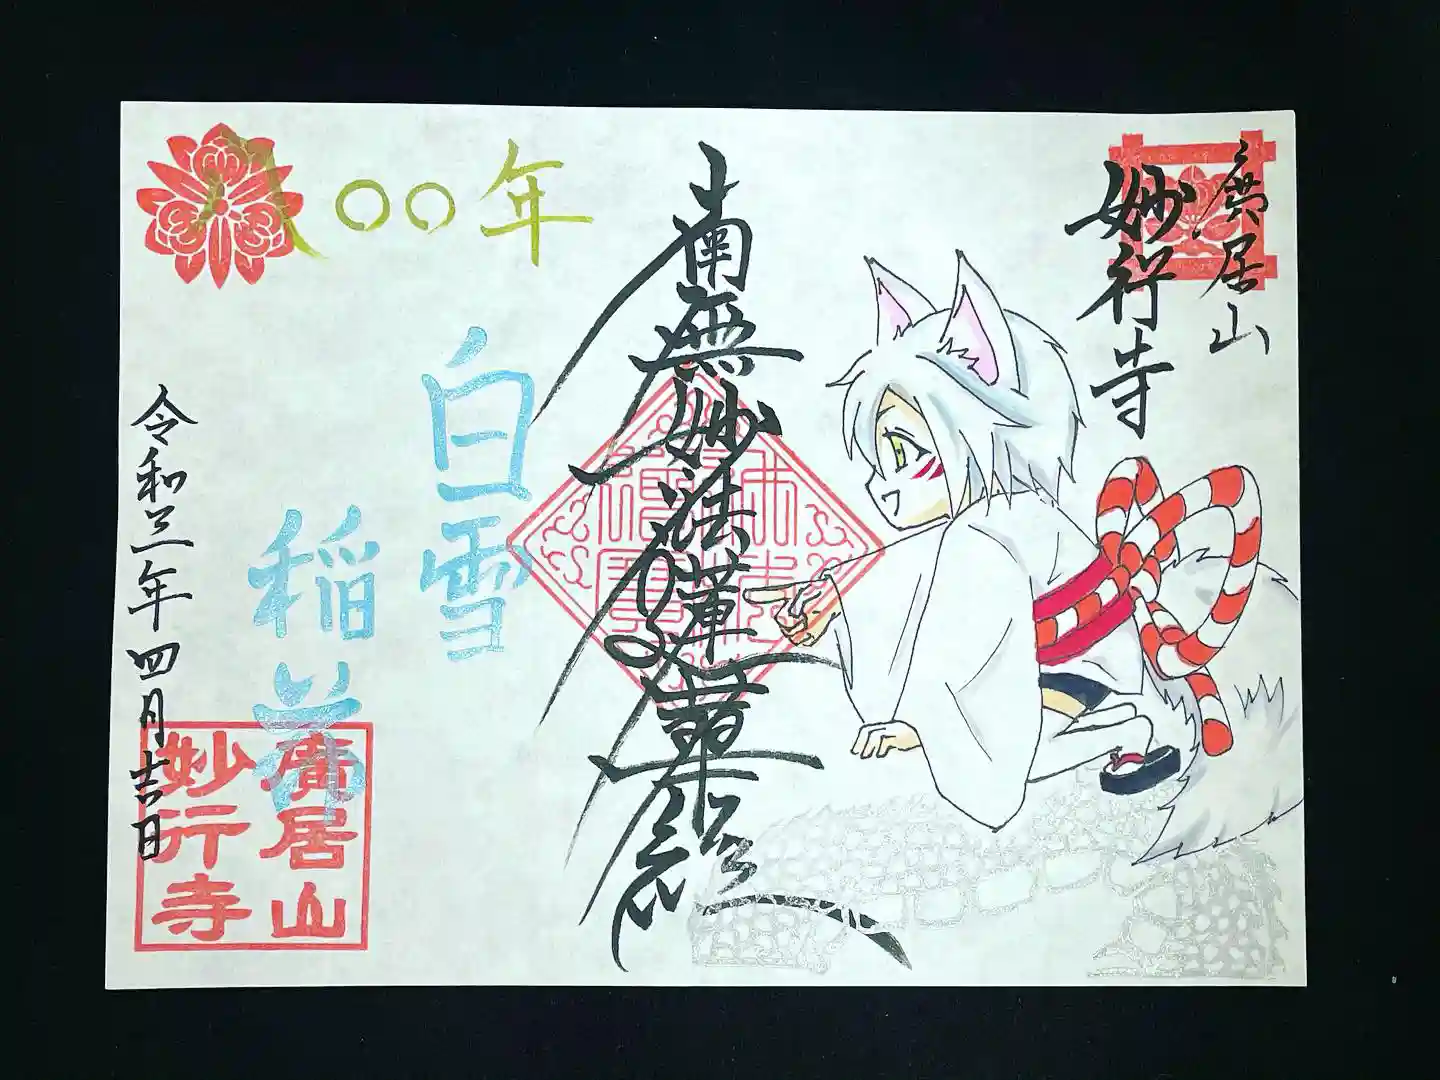 廣居山
妙行寺
南無妙法蓮華経
八〇〇年
白雪
稲荷
令和三年四月吉日
廣居山
妙行寺